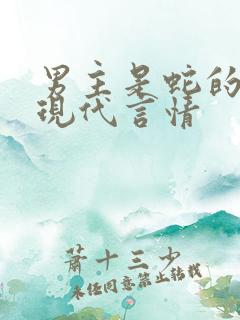 男主是蛇的
現代言情
蕭十三少
未经同意禁止转载